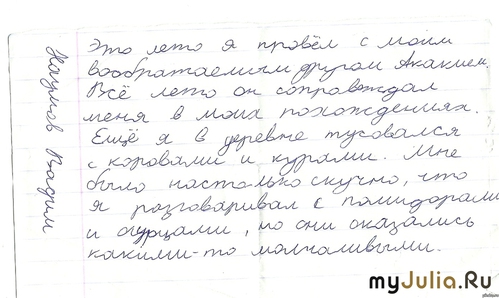 Наумов Вадим
Это лето я провёл с моим
воображаемым другом Акакием.
Всё лето он сопровждал
меня в моих похождениях.
Ещё я в деревне тусовался
с коровами и курами. Мне
было настолько скучно, что
я разговаривал с помидорами
и огурцами, но они оказались
какими-то молчаливыми.
myJulia.Ru